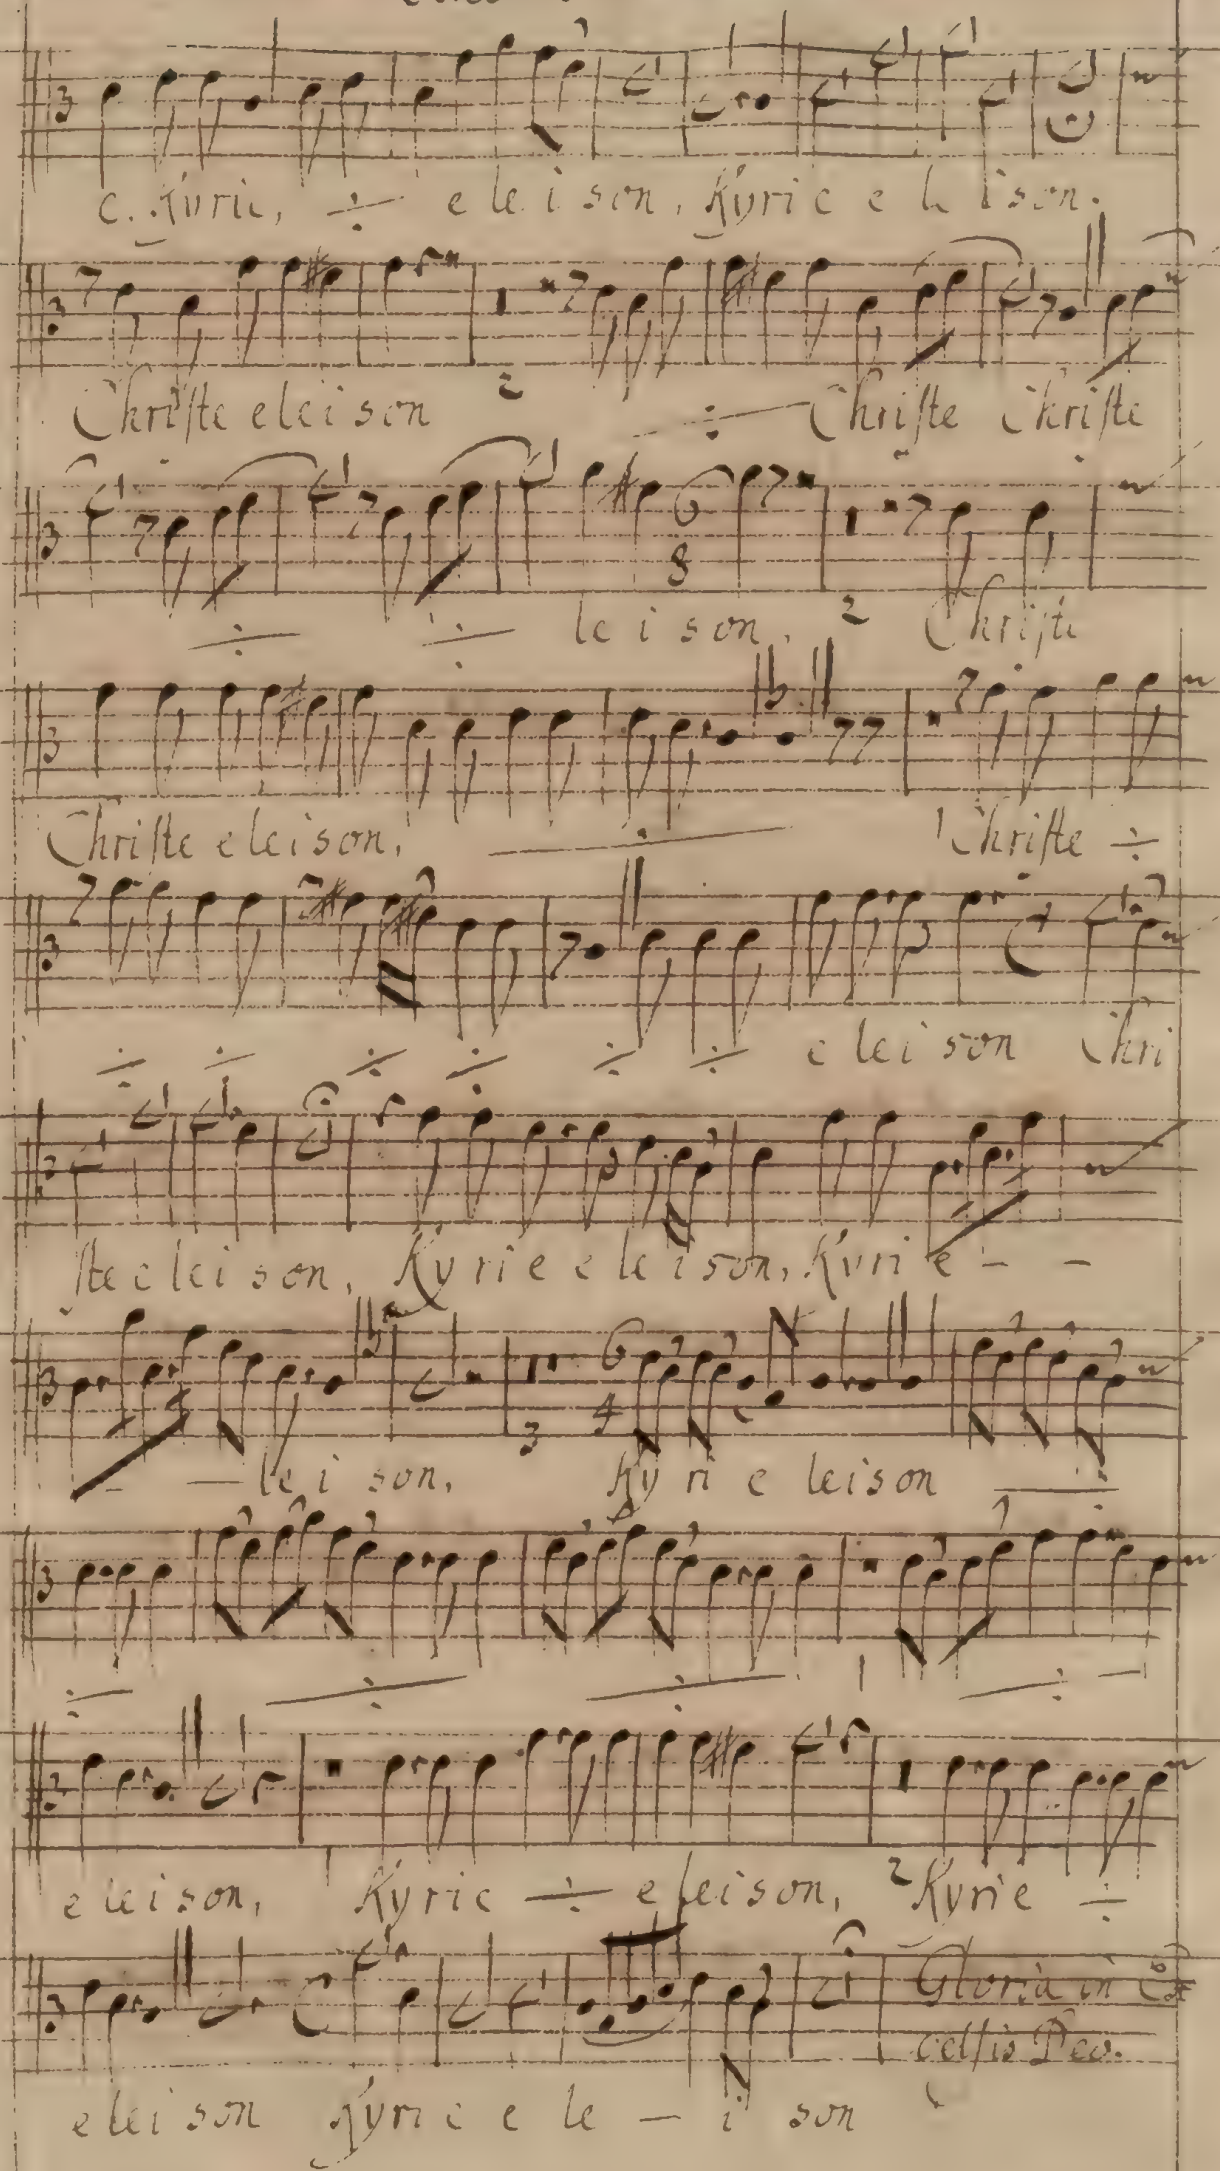 e. Kyrie, ÷ eleison, Kyrie eleison.
Christe eleison 2 ÷ Christe Christe
÷ ÷ leison. 2 Christe
6
8
Christe eleison, ÷ 1 Christe ÷
÷ ÷ ÷ ÷ ÷ ÷ eleison Chri
ste eleison, Kyrie eleison, Kyrie - -
6
4
3
- - leison, Kyrie leison ÷
÷ ÷ ÷ 1 ÷
eleison, 1 Kyrie ÷ eleison, 2 Kyrie ÷
Gloria in
celsis Deo.
eleison Kyrie e le - i son